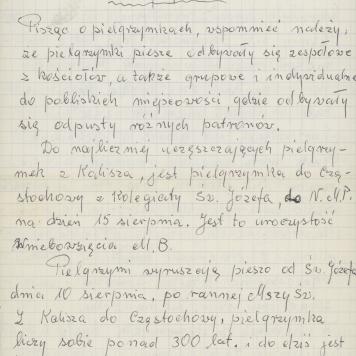 Pisząc o pielgrzymkach, wspomnieć należy,
że pielgrzymki piesze odbywały się zespołowe
z kościołów, a także grupowe i indywidualne
do pobliskich miejscowości, gdzie odbywały
się odpusty różnych patronów.
Do najliczniej uczęszczających pielgrzy-
mek z Kalisza, jest pielgrzymka do Czę-
stochowy z Kolegiaty Św. Józefa, do N.M.P.
na dzień 15 sierpnia. Jest to uroczystość
Wniebowzięcia M.B.
Pielgrzymi wyruszają pieszo od Św. Józefa
dnia 10 sierpnia, po rannej Mszy Św.
Z Kalisza do Częstochowy, pielgrzymka
liczy sobie ponad 300 lat. i do dziś jest